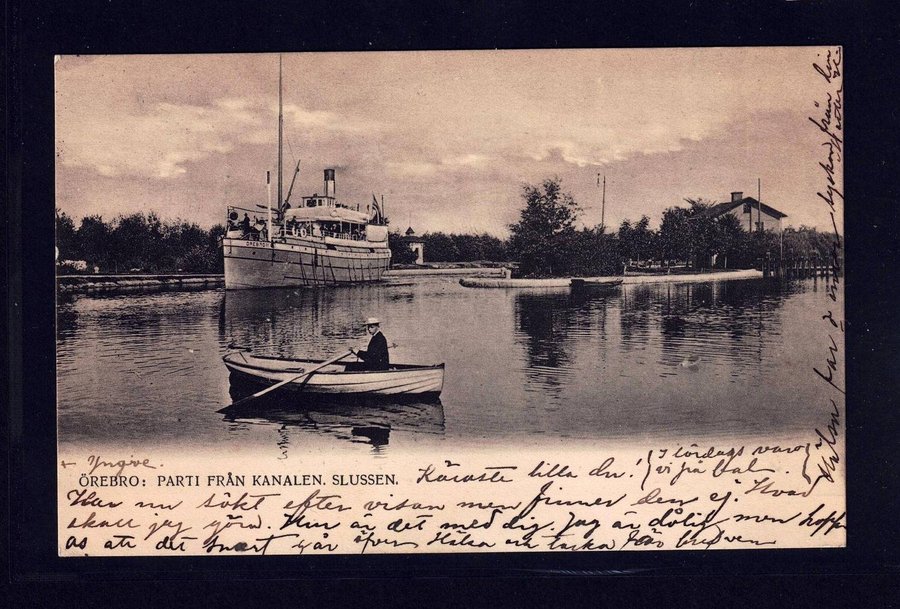 Yngve.
ÖREBRO: PARTI FRÅN KANALEN. SLUSSEN.
Käraste lilla du!
I lördags voro
vi på bal
Har nu sökt efter visan men finner den ej. Hvad
skall jag göra. Hur är det med dig. Jag är dålig men hopp
as att det snart går öfver. Hälsa och tacka för
Hälsn
från
ÖREBRO